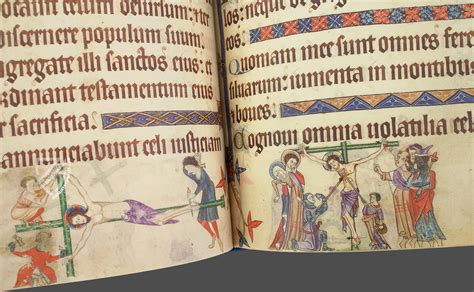 discernere populum suum
gregate illi sanctos eius: 
ordinant testamentum eius
sacrificia.
annunciabunt celi iusticiam
los: neque de gregi
cos.
Quoniam mee sunt omnes fere
siluarum: iumenta in montibus
boues.
Cognoui omnia uolatilia celi